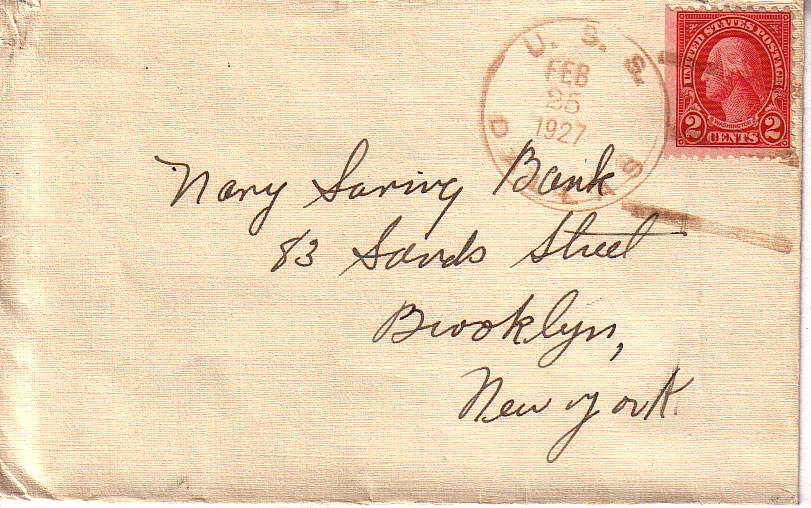 U. S. S.
FEB
25
1927
DALLAS
UNITED STATES POSTAGE
WASHINGTON
2 CENTS 2
Navy Saving Bank
83 Sands Street
Brooklyn,
New York.